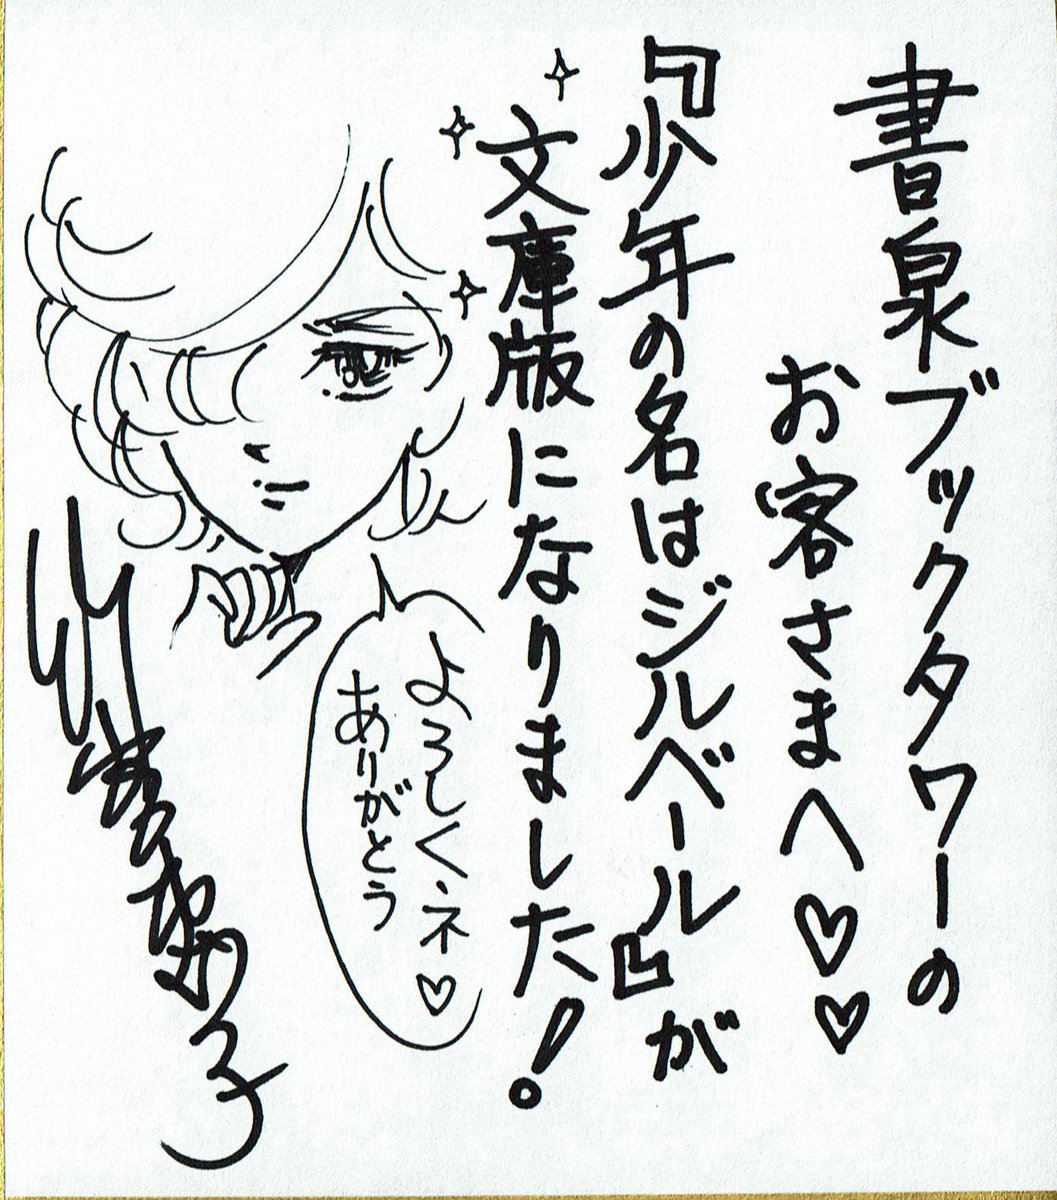 書泉ブックタワーの
お客さまへ♡♡
『少年の名はジルベール』が
文庫版になりました!
よろしくネ♡
ありがとう
竹宮惠子